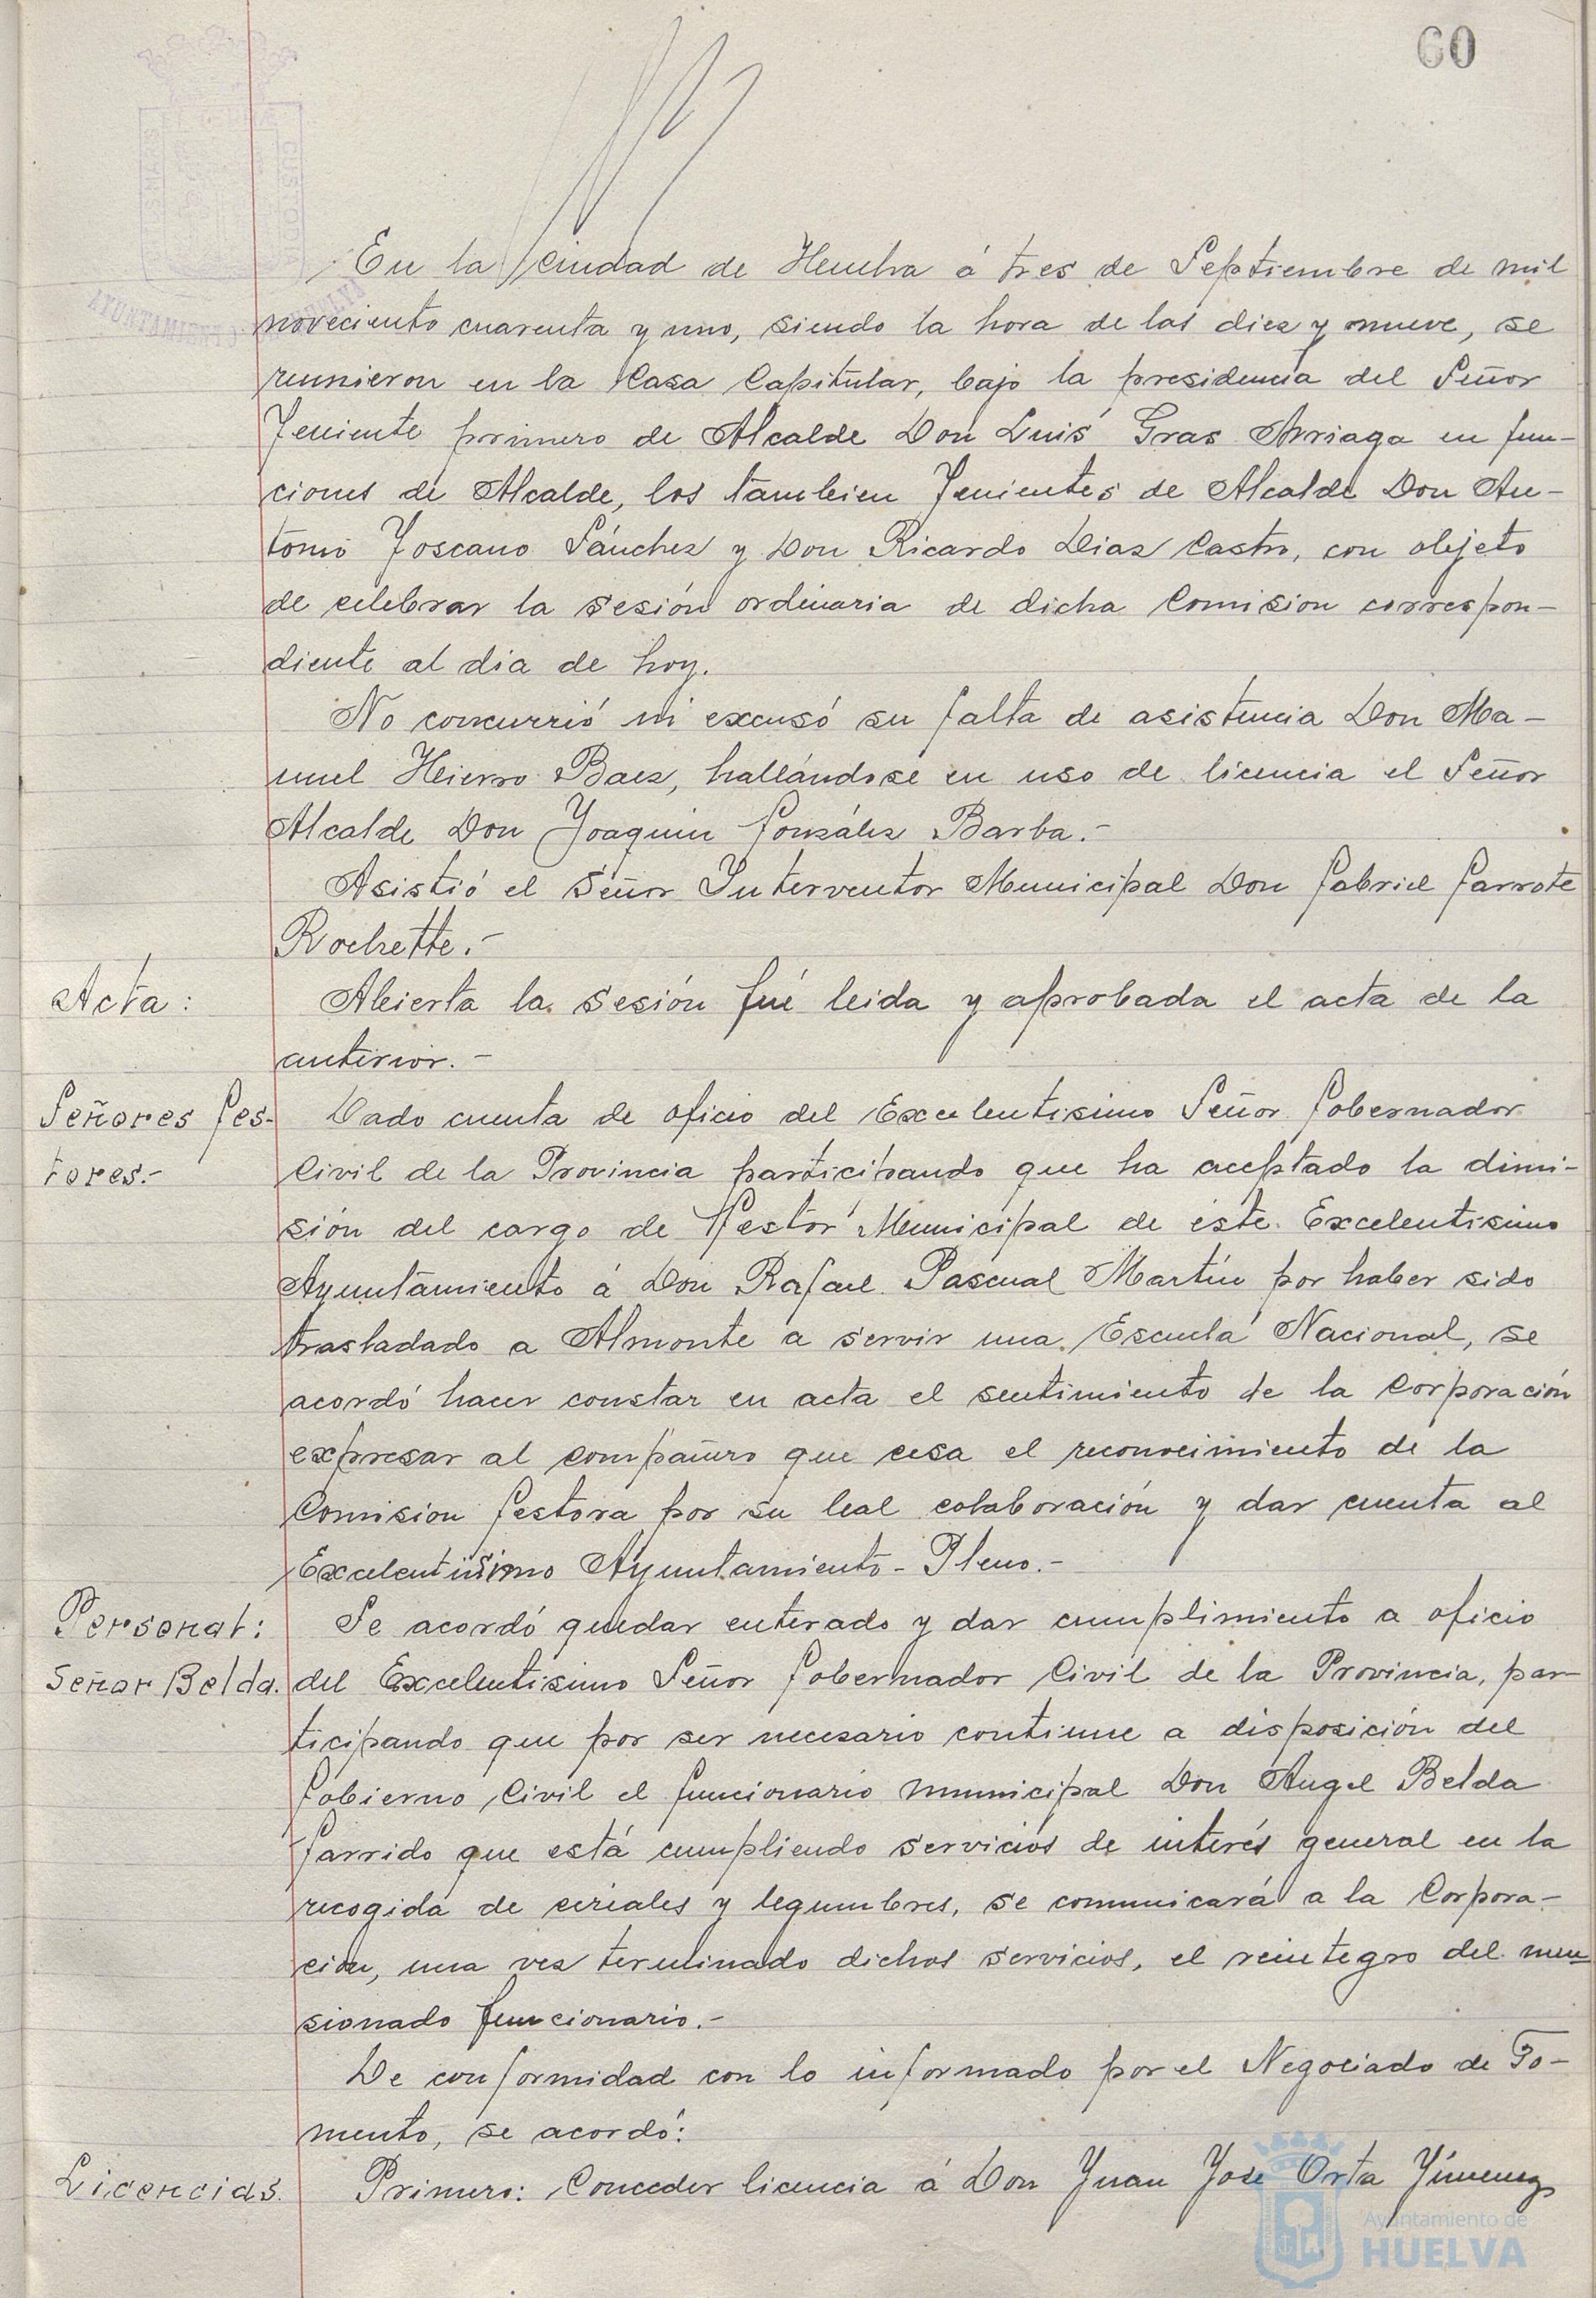 60
En la Ciudad de Huelva á tres de Septiembre de mil
noveciento cuarenta y uno, siendo la hora de las diez y nueve, se
reunieron en la Casa Capitular, bajo la presidencia del Señor
Teniente primero de Alcalde Don Luis Gras Arriaga en fun-
ciones de Alcalde, los tambien Tenientes de Alcalde Don An-
tonio Toscano Sánchez y Don Ricardo Diaz Castro, con objeto
de celebrar la sesión ordinaria de dicha Comision correspon-
diente al dia de hoy.
No concurrió ni excusó su falta de asistencia Don Ma-
nuel Hierro Baez, hallándose en uso de licencia el Señor
Alcalde Don Joaquin González Barba.-
Asistió el Señor Interventor Municipal Don Gabriel Garrote
Rochette.-
Acta:
Abierta la sesión fué leida y aprobada el acta de la
anterior.-
Señores Ges-
tores.-
Dado cuenta de oficio del Excelentisimo Señor Gobernador
Civil de la Provincia participando que ha aceptado la dimi-
sión del cargo de Gestor Municipal de éste Excelentisimo
Ayuntamiento á Don Rafael Pascual Martín por haber sido
trasladado a Almonte a servir una Escuela Nacional, se
acordó hacer constar en acta el sentimiento de la Corporación
expresar al compañero que cesa el reconocimiento de la
Comision Gestora por su leal colaboración y dar cuenta al
Excelentisimo Ayuntamiento-Pleno.-
Personal:
Señor Belda.
Se acordó quedar enterado y dar cumplimiento a oficio
del Excelentisimo Señor Gobernador Civil de la Provincia, par-
ticipando que por ser necesario continue a disposición del
Gobierno Civil el funcionario municipal Don Angel Belda
Garrido que está cumpliendo servicios de interés general en la
recogida de cereales y legumbres, se comunicará a la Corpora-
cion, una vez terminado dichos servicios, el reintegro del men-
sionado funcionario.-
De conformidad con lo informado por el Negociado de Fo-
mento, se acordó:
Licencias.
Primero: Conceder licencia á Don Juan Jose Orta Jimenez
Ayuntamiento de
HUELVA